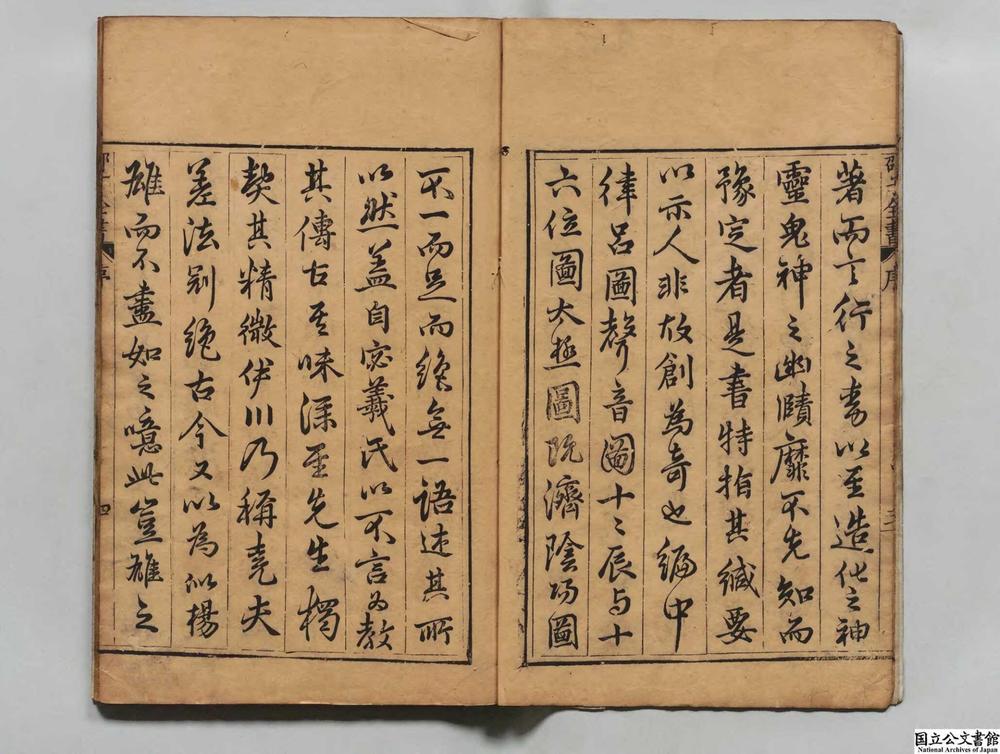 著而言行之表以至造化之神
靈鬼神之幽賾靡不先知而
豫定者是書特指其緘要
以示人非故創為奇也編中
律呂圖聲音圖十二辰与十
六位圖太極圖既濟陰陽圖
不一而足而總無一語述其所
以然蓋自宓羲氏以不言為教
其傳古其味深至先生獨
契其精微伊川乃稱堯夫
差法別絕古今又以為似楊
雄而不盡如之噫此豈雄之
邵子全書
序
三
邵子全書
序
四
国立公文書館
National Archives of Japan